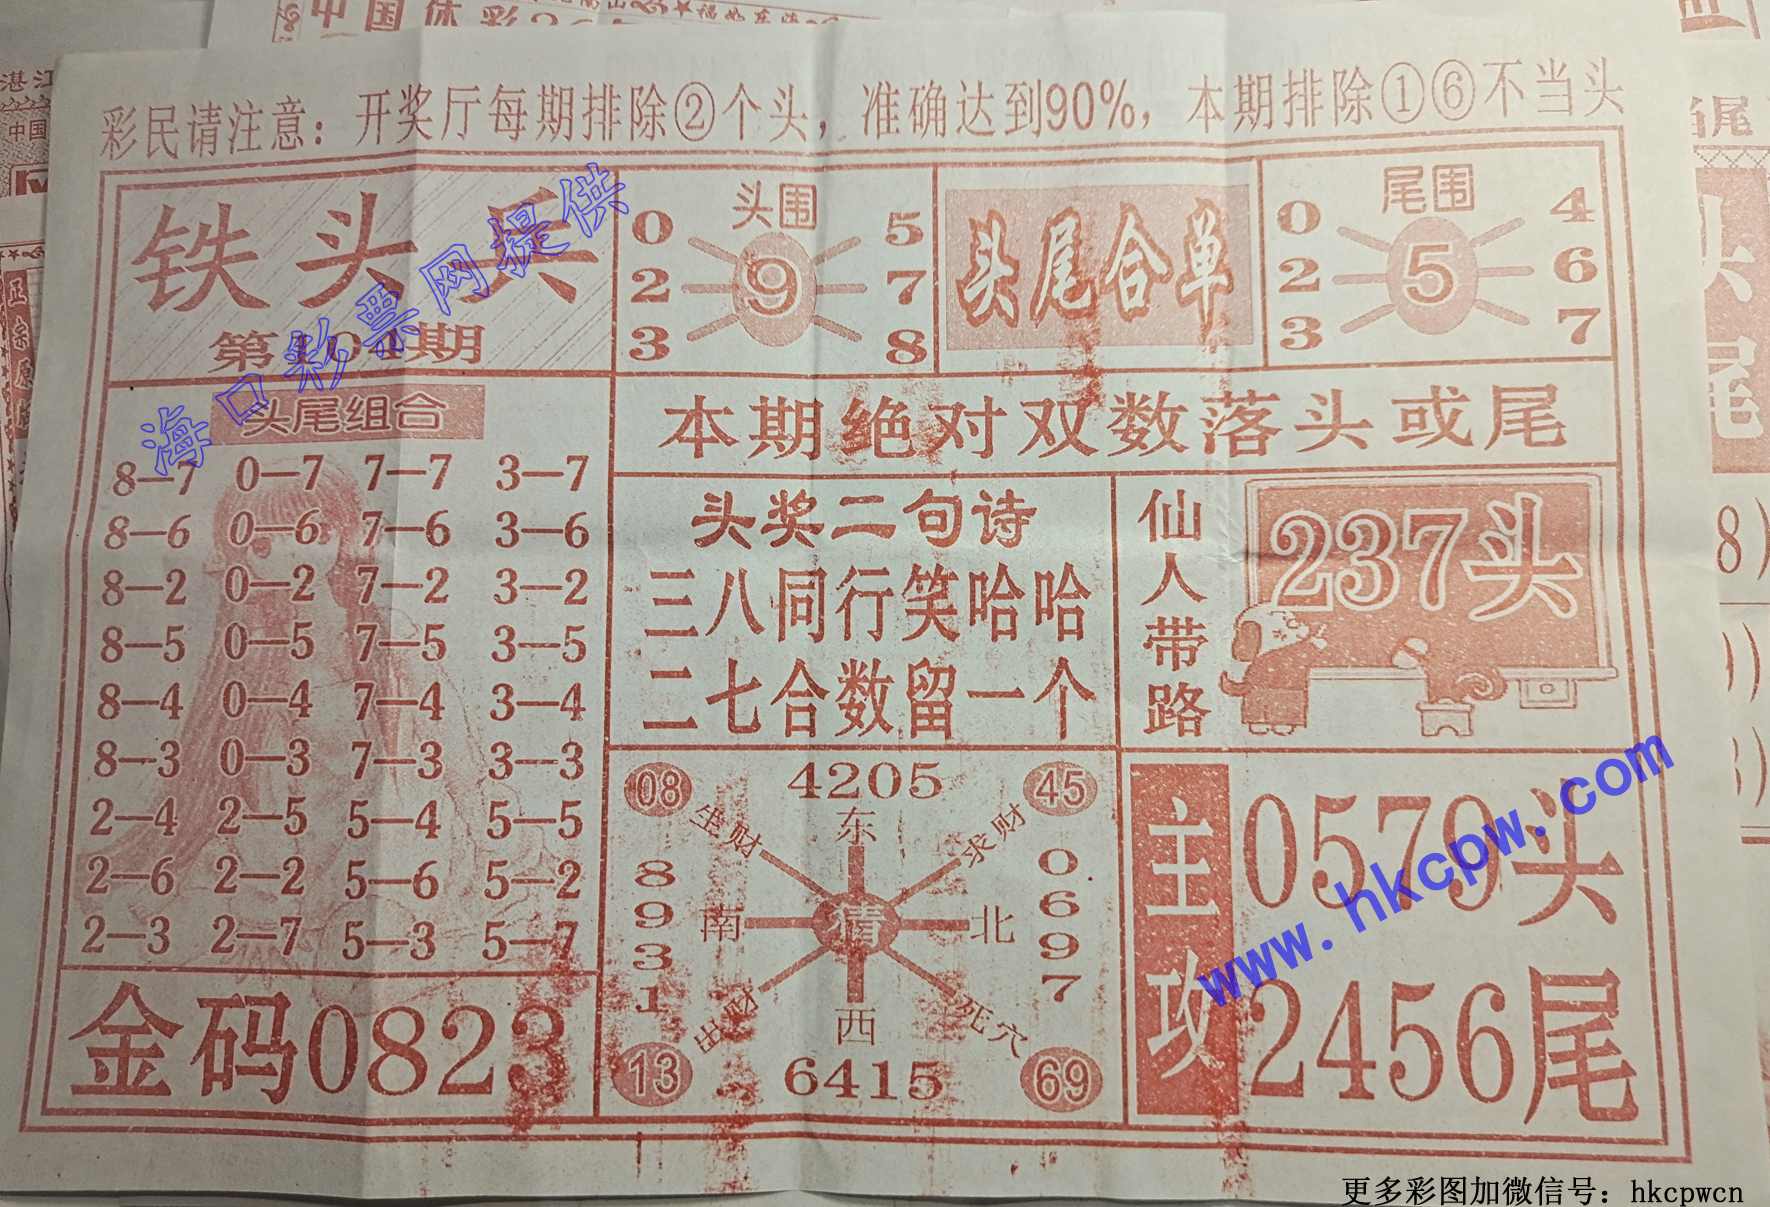 中国体彩
彩民请注意：开奖厅每期排除②个头，准确达到90%，本期排除①⑥不当头
铁头兵
第104期
头围
0 5
2 9 7
3 8
头尾合单
尾围
0 4
2 5 6
3 7
头尾组合
8—7 0—7 7—7 3—7
8—6 0—6 7—6 3—6
8—2 0—2 7—2 3—2
8—5 0—5 7—5 3—5
8—4 0—4 7—4 3—4
8—3 0—3 7—3 3—3
2—4 2—5 5—4 5—5
2—6 2—2 5—6 5—2
2—3 2—7 5—3 5—7
金码0823
本期绝对双数落头或尾
头奖二句诗
三八同行笑哈哈
二七合数留一个
仙人带路
237头
08 4205 45
生财 东 求财
8931 南 猜 北 0697
出财 西 死穴
13 6415 69
主攻
0579头
2456尾
海口彩票网提供
www.hkcpw.com
更多彩图加微信号：hkcpwcn